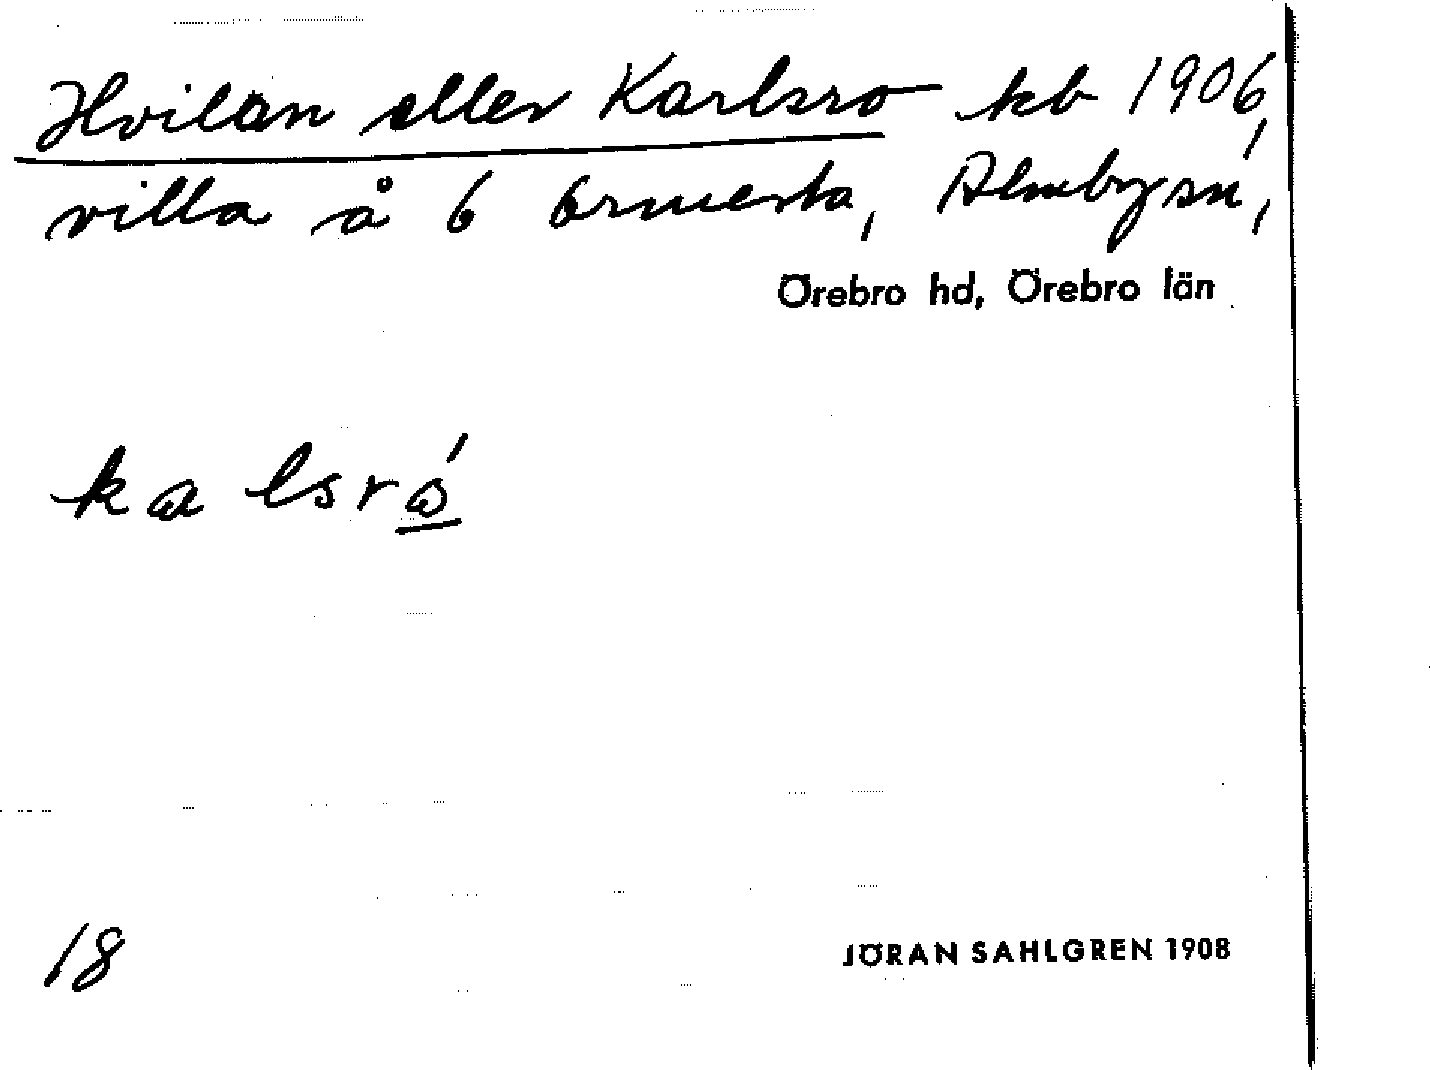 Hvilan eller Karlsro kb 1906,
villa å 6 Ormesta, Almby sn,
Örebro hd, Örebro län
ka lsró
18
JÖRAN SAHLGREN 1908